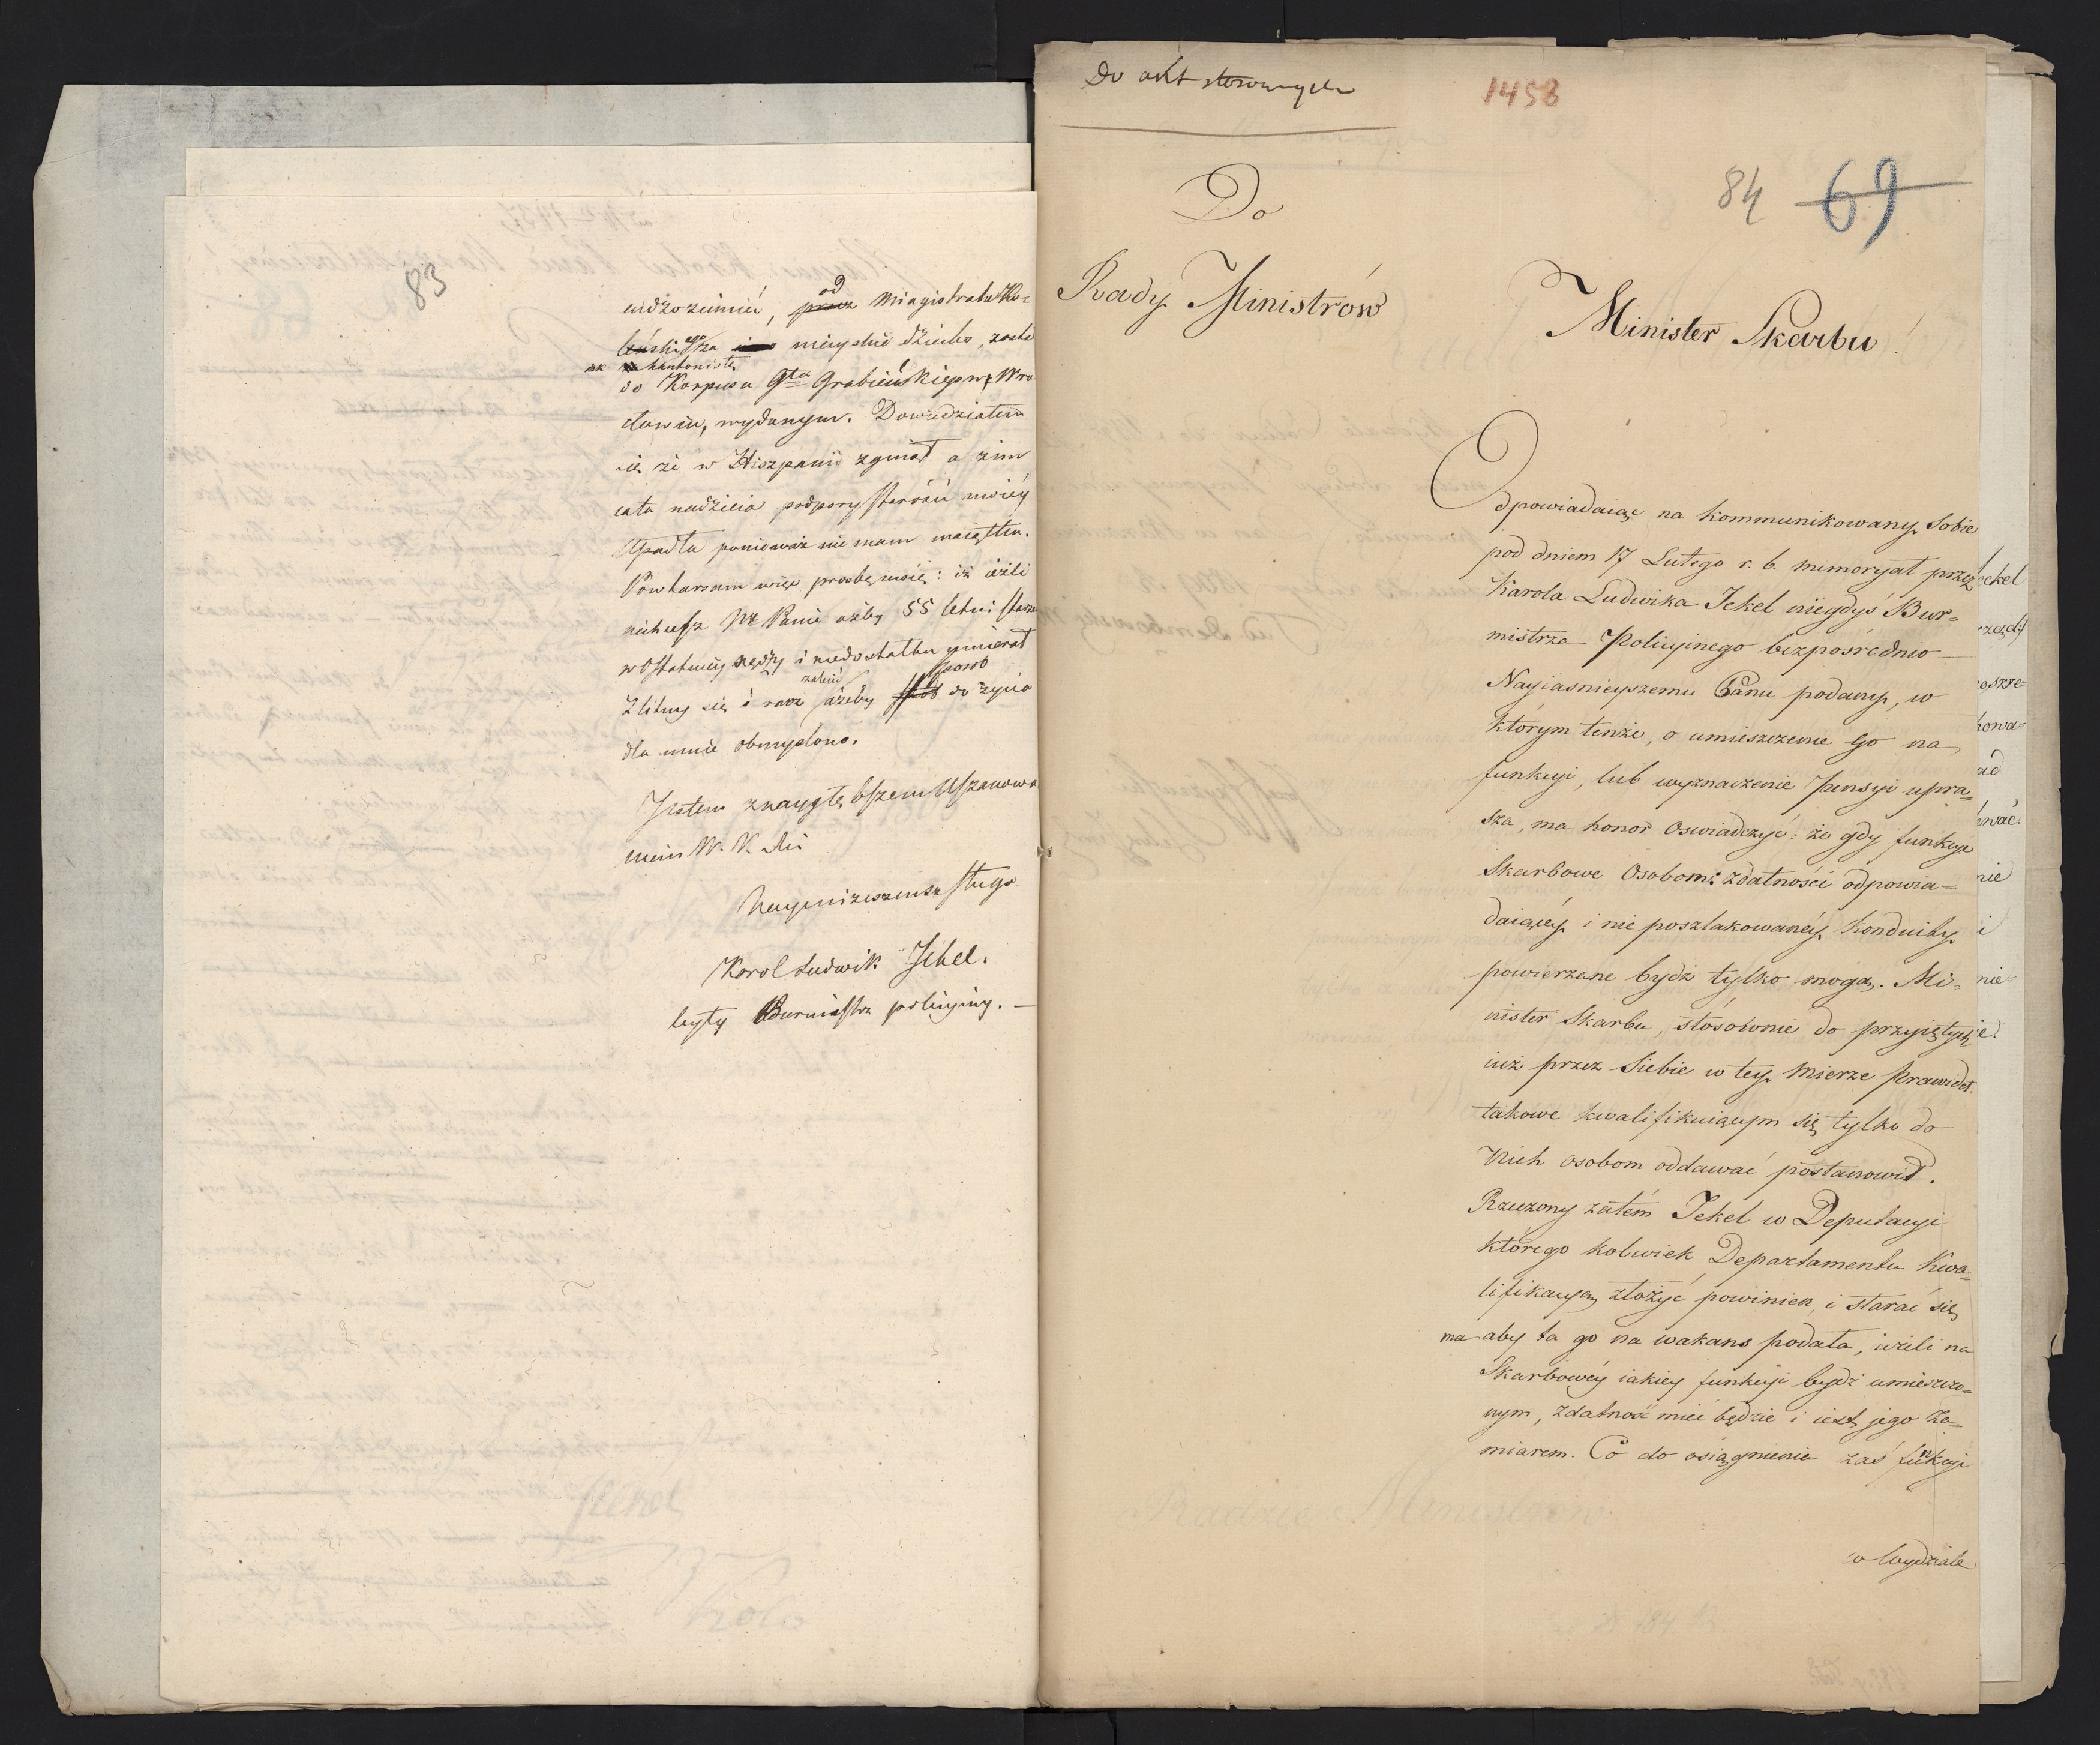 83
cudzoziemiec, ~~przez~~ od Magistratu Ko=
leński ego za mieyskie dziecko, zosta
ak kantonista
do Korpusu Gła Grabieńskiego w Wro
cławiu, wydanym. Dowiedziałem
się że w Hiszpanii zginął a z nim
cała nadzieia podpory starości moiéy
upadła ponieważ nie mam maiątku.
Powtarzam więc prośbę moię: iż ieżli
niechcesz Nk Panie ażeby 55 letni starze
w ostatniéy nędzy i niedostatku umierał
zlituy się i racz zalecić ażeby sposób do życia
dla mnie obmyślono.
Jestem z naygłębszem Uszanowa
niem W. K. Mci
Nayuniżeńszem sługą
Karol Ludwik Jekel.
były Burmistrz policyiny. —
Do akt stosownych
1458
84 ~~69~~
Do
Rady Ministrów
Minister Skarbu
Odpowiadaiąc na kommunikowany Sobie
pod dniem 17 Lutego r. b. memoryał przez
Karola Ludwika Jekel niegdyś Bur=
mistrza Policyinego bezpośrednio
Nayiasnieyszemu Panu podany, w
którym tenże, o umieszczenie go na
funkcyi, lub wyznaczenie Pensyi upra=
sza, ma honor Oświadczyć: że gdy funkcye
Skarbowe Osobom zdatności odpowia=
daiącéy i nie poszlakowanéy Konduity
powierzane bydź tylko mogą. Mi=
nister Skarbu, stósownie do przyiętych
iuż przez Siebie w tey mierze Prawideł
takowe kwalifikuiącym się tylko do
Nich osobom oddawać postanowił.
Rzeczony zatém Jekel w Deputacyi
którego kolwiek Departamentu Kwa=
lifikacyą złożyć powinien, i starać się
ma aby ta go na wakans podała, ieżeli na
Skarbowéy iakiey funkcyi bydź umieszczo=
nym, zdatność mieć będzie i iest jego Za=
miarem. Co do osiągnienia zaś funkcyi
w Wydziale